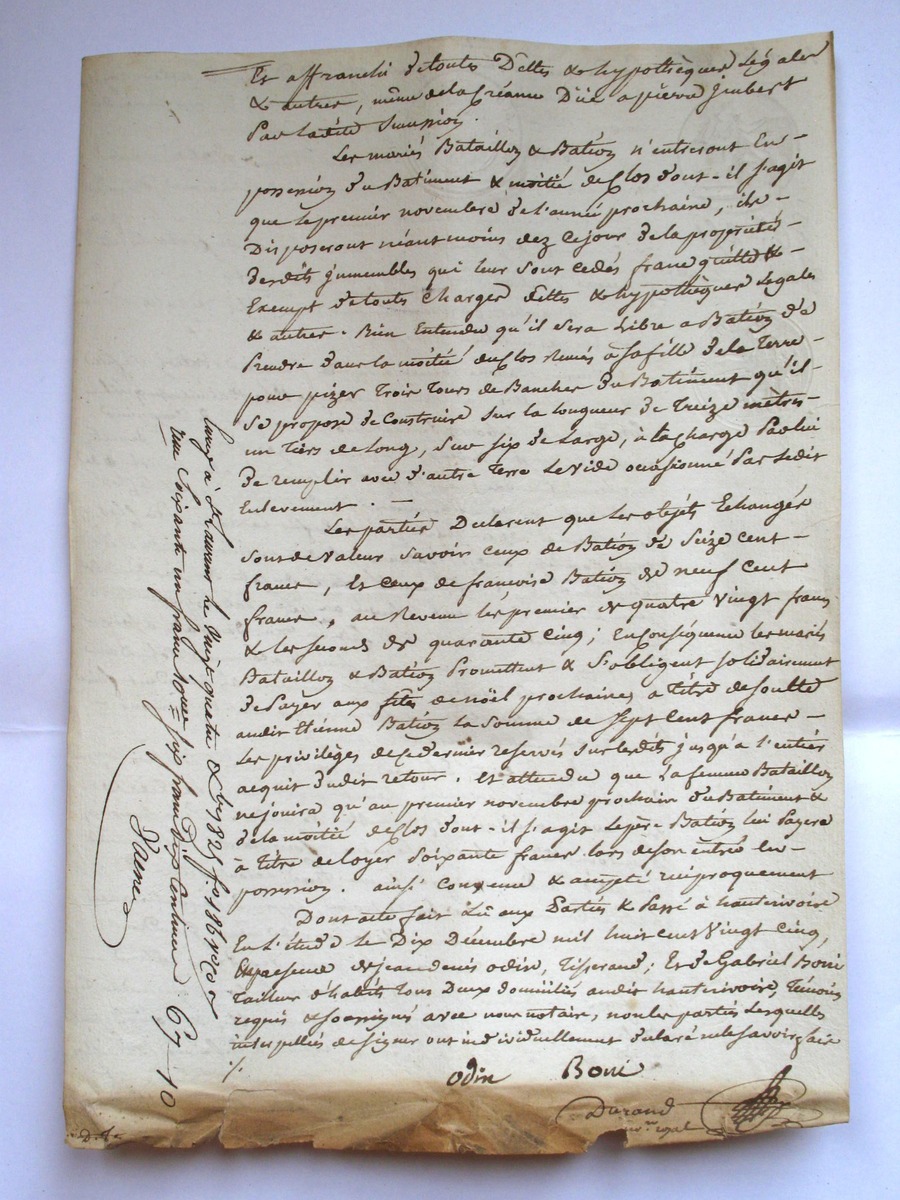 Et affranchi de toutes Dettes & hypothèques Légales
& autres, même de la Créance Düe a pierre jmbert
Par ladite Soumission.
Les mariés Bataillon & Bation n'entreront En
possession du Batiment & moitié de Clos dont-il s'agit
que le premier novembre de l'année prochaine, ils
Disposeront néantmoins dez ce jour de la propriété
desdits jmmeubles qui leur sont cedés franc quitte &
Exempt de toutes Charges dettes & hypothèques Légales
& autres. Bien Entendu qu'il sera Libre a Bation de
Prendre dans la moitié du Clos remis à sa fille de la Terre
pour pizer Trois Tours de Banches du Batiment qu'il
se propose de Construire sur la longueur de Treize mètres
un tiers de Long, sur six de Large, à la Charge Par lui
de remplir avec d'autre Terre Le vide ocasionné Par Ledit
Enlevement.
Les parties Déclarent que Les objets Echangés
sont de valeur savoir ceux de Bation de Seize cent
francs, Et Ceux de françoise Bation de neuf Cent
francs, au Revenu les premier de quatre Vingt francs
& les seconds de quarante Cinq; En Conséquence les mariés
Bataillon & Bation Promettent & s'obligent solidairement
de Payer aux fêtes de noël prochaines à titre de soulte
audit Etienne Bation la somme de sept Cent francs
Les privilèges de ce dernier reservés sur lesdits jusqu'a l'entier
acquit dudit retour. Et attendu que La femme Bataillon
ne jouira qu'au premier novembre prochain du Batiment &
de la moitié de Clos dont-il s'agit Le père Bation lui Payera
à titre de loyer soixante francs lors de son entrée En
possession. ainsi Convenu & accepté reciproquement
Dont acte fait Lû aux Parties & Passé à hauterivoire
En l'étude le Dix Décembre mil huit cent vingt Cinq,
En presence de jean denis odin, Tisserand; Et de Gabriel Boni
Tailleur d'habits tous Deux domiciliés audit hauterivoire, Témoins
requis & soussignés avec nous notaire, non les parties Lesquelles
interpellées de signer ont individuellement déclaré ne le savoir faire
odin Boni
Durand
nore royal
D. f.
Enregé à St Laurent le vingt quatre Xbre 1825 fo 186
reçu soixante un francs 10me six francs Dix Centimes 67-10